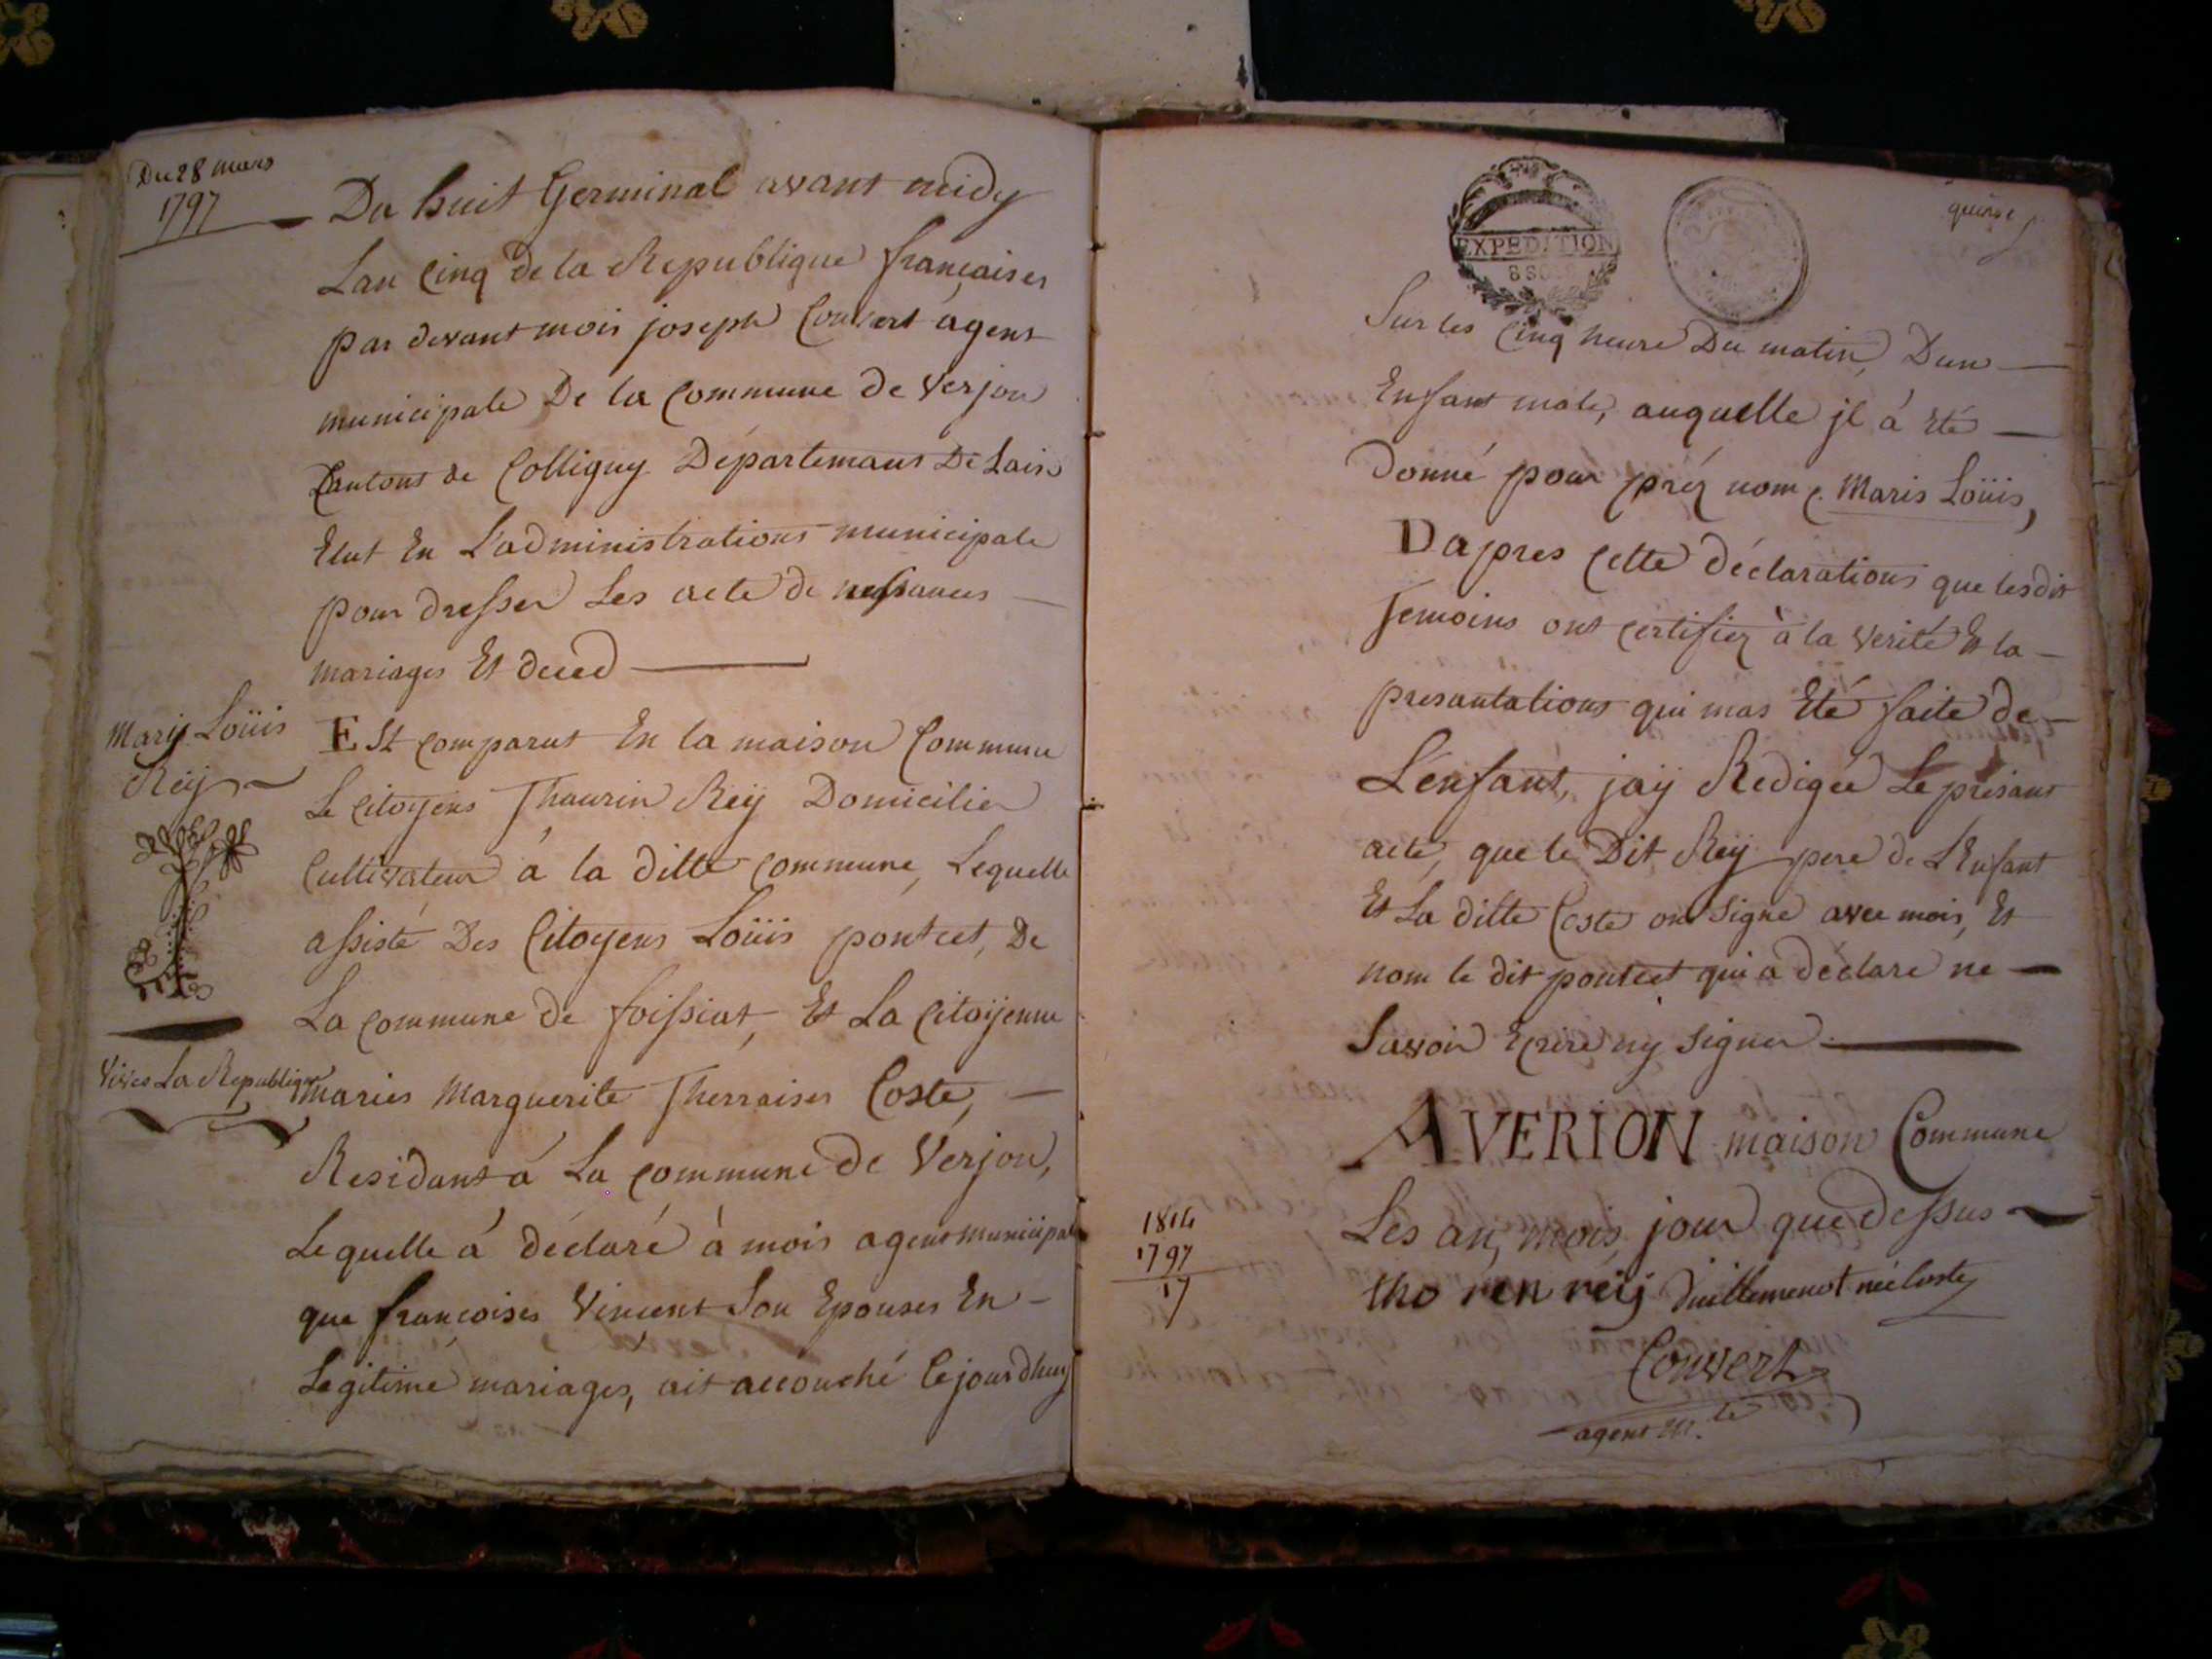 Du 28 mars
1797
Du huit Germinal avant midy
Lan Cinq de la Republique françaises
par devant mois joseph Convert agent
municipale De la Commune de Verjon
Cantons de Colligny Departemans De Lain
Elut En L'administrations municipale
pour dresser Les acte de nessances
mariages Et deced
Maris Loüis
Reÿ
Vives La Republique
Est comparut En la maison Commune
Le Citoyens Thaurin Reÿ Domicilier
Cultivateur à la ditte Commune, Lequelle
assisté Des Citoyens Loüis pontcet, De
La Commune de foissiat, Et La Citoÿenne
maries Marguerite Therraises Coste,
Residant à La Commune de Verjon,
Lequelle à déclaré à mois agent municipale
que françoises Vincent Son Epouses En
Legitime mariages, ait accouché Cejourdhuy
EXPEDITION
quinse
Sur les Cinq heure Du matin, Dun
Enfant male, auquelle jl à Eté
donné pour préz nom Maris Loüis,
Dapres Cette déclarations que lesdit
Temoins ont Certifiez à la Verité Et la
presantations qui mas Eté faite de
L'enfant, jaÿ Redigée Le présant
acte, que le Dit Reÿ pere de L'Enfant
Et La ditte Coste on Signe avec mois, Et
nom le dit pontcet qui a déclare ne
Savoir Ecrire ny Signer
AVERION maison Commune
Les an, mois, jour que dessus
tho ren reij Duillemenot née Coste
Convert
agent m.le
1814
1797
17